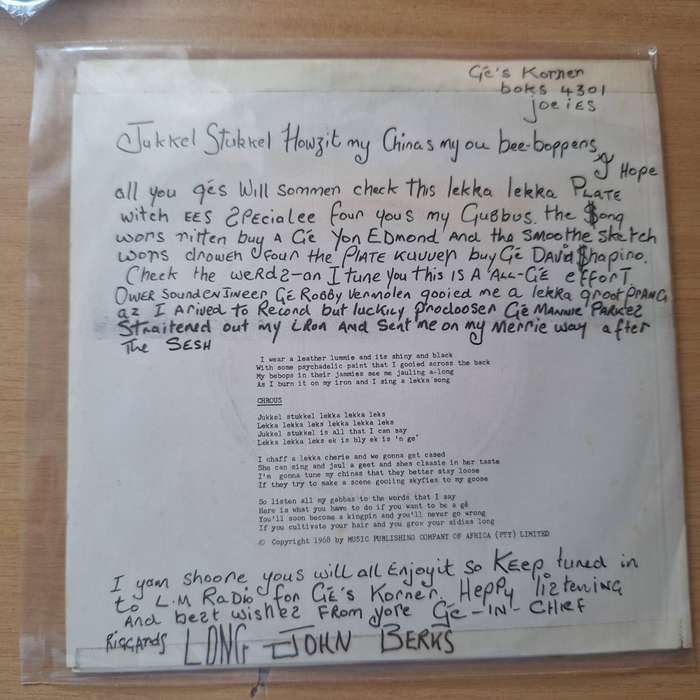 Gé's Korner
boks 4301
joeies
Jukkel Stukkel Howzit my Chinas my ou bee-boppens
I Hope
all you gés Will sommen check this lekka lekka PLATE
witch EES SPecialee four yous my Gubbus. the $ong
wors ritten buy A Gé Yon EDmond And the smoothe sketch
wors drowen four the PLATE KUVVER buy Gé David $hapiro.
Check the werds-on I tune you this IS A ALL-Gé effort
OWER SoundenJineer Gé RoBBY Vermolen gooied me a lekka groot PRANG
az I ARived to Record but luckily proclooser Gé MANNIE PARKes
Straitened out my IRON And Sent me on my Merrie way after
The SESH
I wear a leather lummie and its shiny and black
With some psychadelic paint that I gooied across the back
My bebops in their jammies see me jauling a-long
As I burn it on my iron and I sing a lekka song
CHROUS
Jukkel stukkel lekka lekka leks
Lekka lekka leks lekka lekka leks
Jukkel stukkel is all that I can say
Lekka lekka leks ek is bly ek is 'n ge'
I chaff a lekka cherie and we gonna get cased
She can sing and jaul a geet and shes classie in her taste
I'n gonna tune my chinas that they better stay loose
If they try to make a scene gooiing skyfies to my goose
So listen all my gabbas to the words that I say
Here is what you have to do if you want to be a gé
You'll soon become a kingpin and you'll never go wrong
If you cultivate your hair and you grow your sidies long
© Copyright 1968 by MUSIC PUBLISHING COMPANY OF AFRICA (PTY) LIMITED
I yam shoore yous will all Enjoyit so Keep tuned in
to L.M Radio for Gé's Korner. Heppy listening
And best wishes From yore Gé-IN-CHIEF
Riggards LONG JOHN BERKS